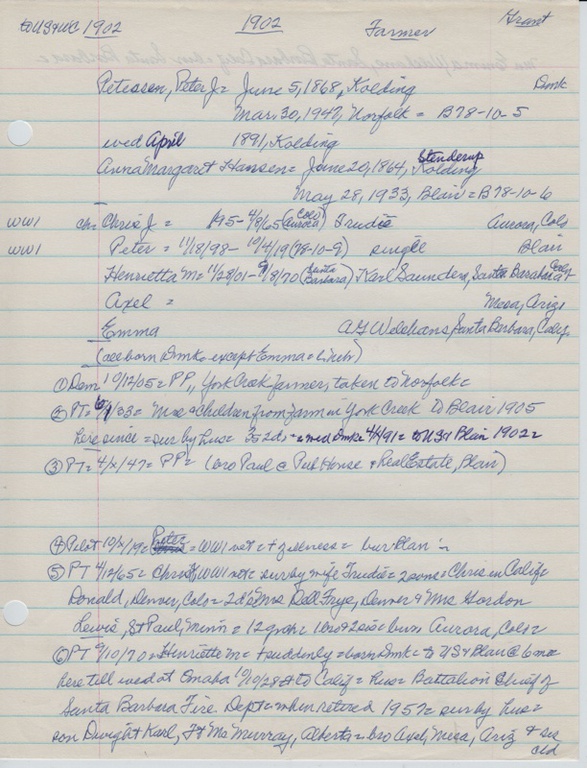 to US & WC 1902 1902 Farmer Grant
Petersen, Peter J = June 5, 1868, Kolding Dmk
Mar. 30, 1947, Norfolk = B78-10-5
wed April 1891, Kolding
Anna Margaret Hansen = June 20, 1864, Stenderup Kolding
May 28, 1933, Blair = B78-10-6
WW1 ch = Chris J = 4/8/65 (Aurora Colo) Trudie Aurora, Colo
WW1 Peter = 11/18/98 - 10/4/19 (78-10-9) single Blair
Henrietta M = 11/28/01 - 9/8/70 (Santa Barbara) Karl Saunders, Santa Barabara Calif
Axel = Mesa, Ariz
Emma A G Santa Barbara, Calif.
(all born Dmk except Emma =
① Dem 10/12/05 = PP, York Creek farmer, taken to Norfolk =
② PT = 6/1/33 = Mrs & Children from farm in York Creek to Blair 1905
here since = sur by hus = 3s 2ds = wed Dmk 4/4/91 = to US & Blair 1902 =
③ PT = 4/x/47 = PP = (bro Paul @ Pub House & Real Estate, Blair)
④ Pilot 10/x/19 = Peter = WW1 vet = + of illness = bur Blair
⑤ PT 4/12/65 = Chris WW1 vet = sur by wife Trudie = 2 sons = Chris in Calif =
Donald, Denver, Colo = 2 ds Mrs Dell Frye, Denver & Mrs Gordon
Lewis, St Paul, Minn = 12 grch = 1 bro & 2 sis = bur Aurora, Colo =
⑥ PT 9/10/70 = Henrietta M = + suddenly = born Dmk = to US & Blair @ 6 mo =
here till wed at Omaha 10/10/28 & to Calif = hus = Battalion Chief of
Santa Barbara Fire Dept = when retired 1957 = sur by hus =
son Dwight Karl, Ft McMurray, Alberta = bro Axel, Mesa, Ariz & sis